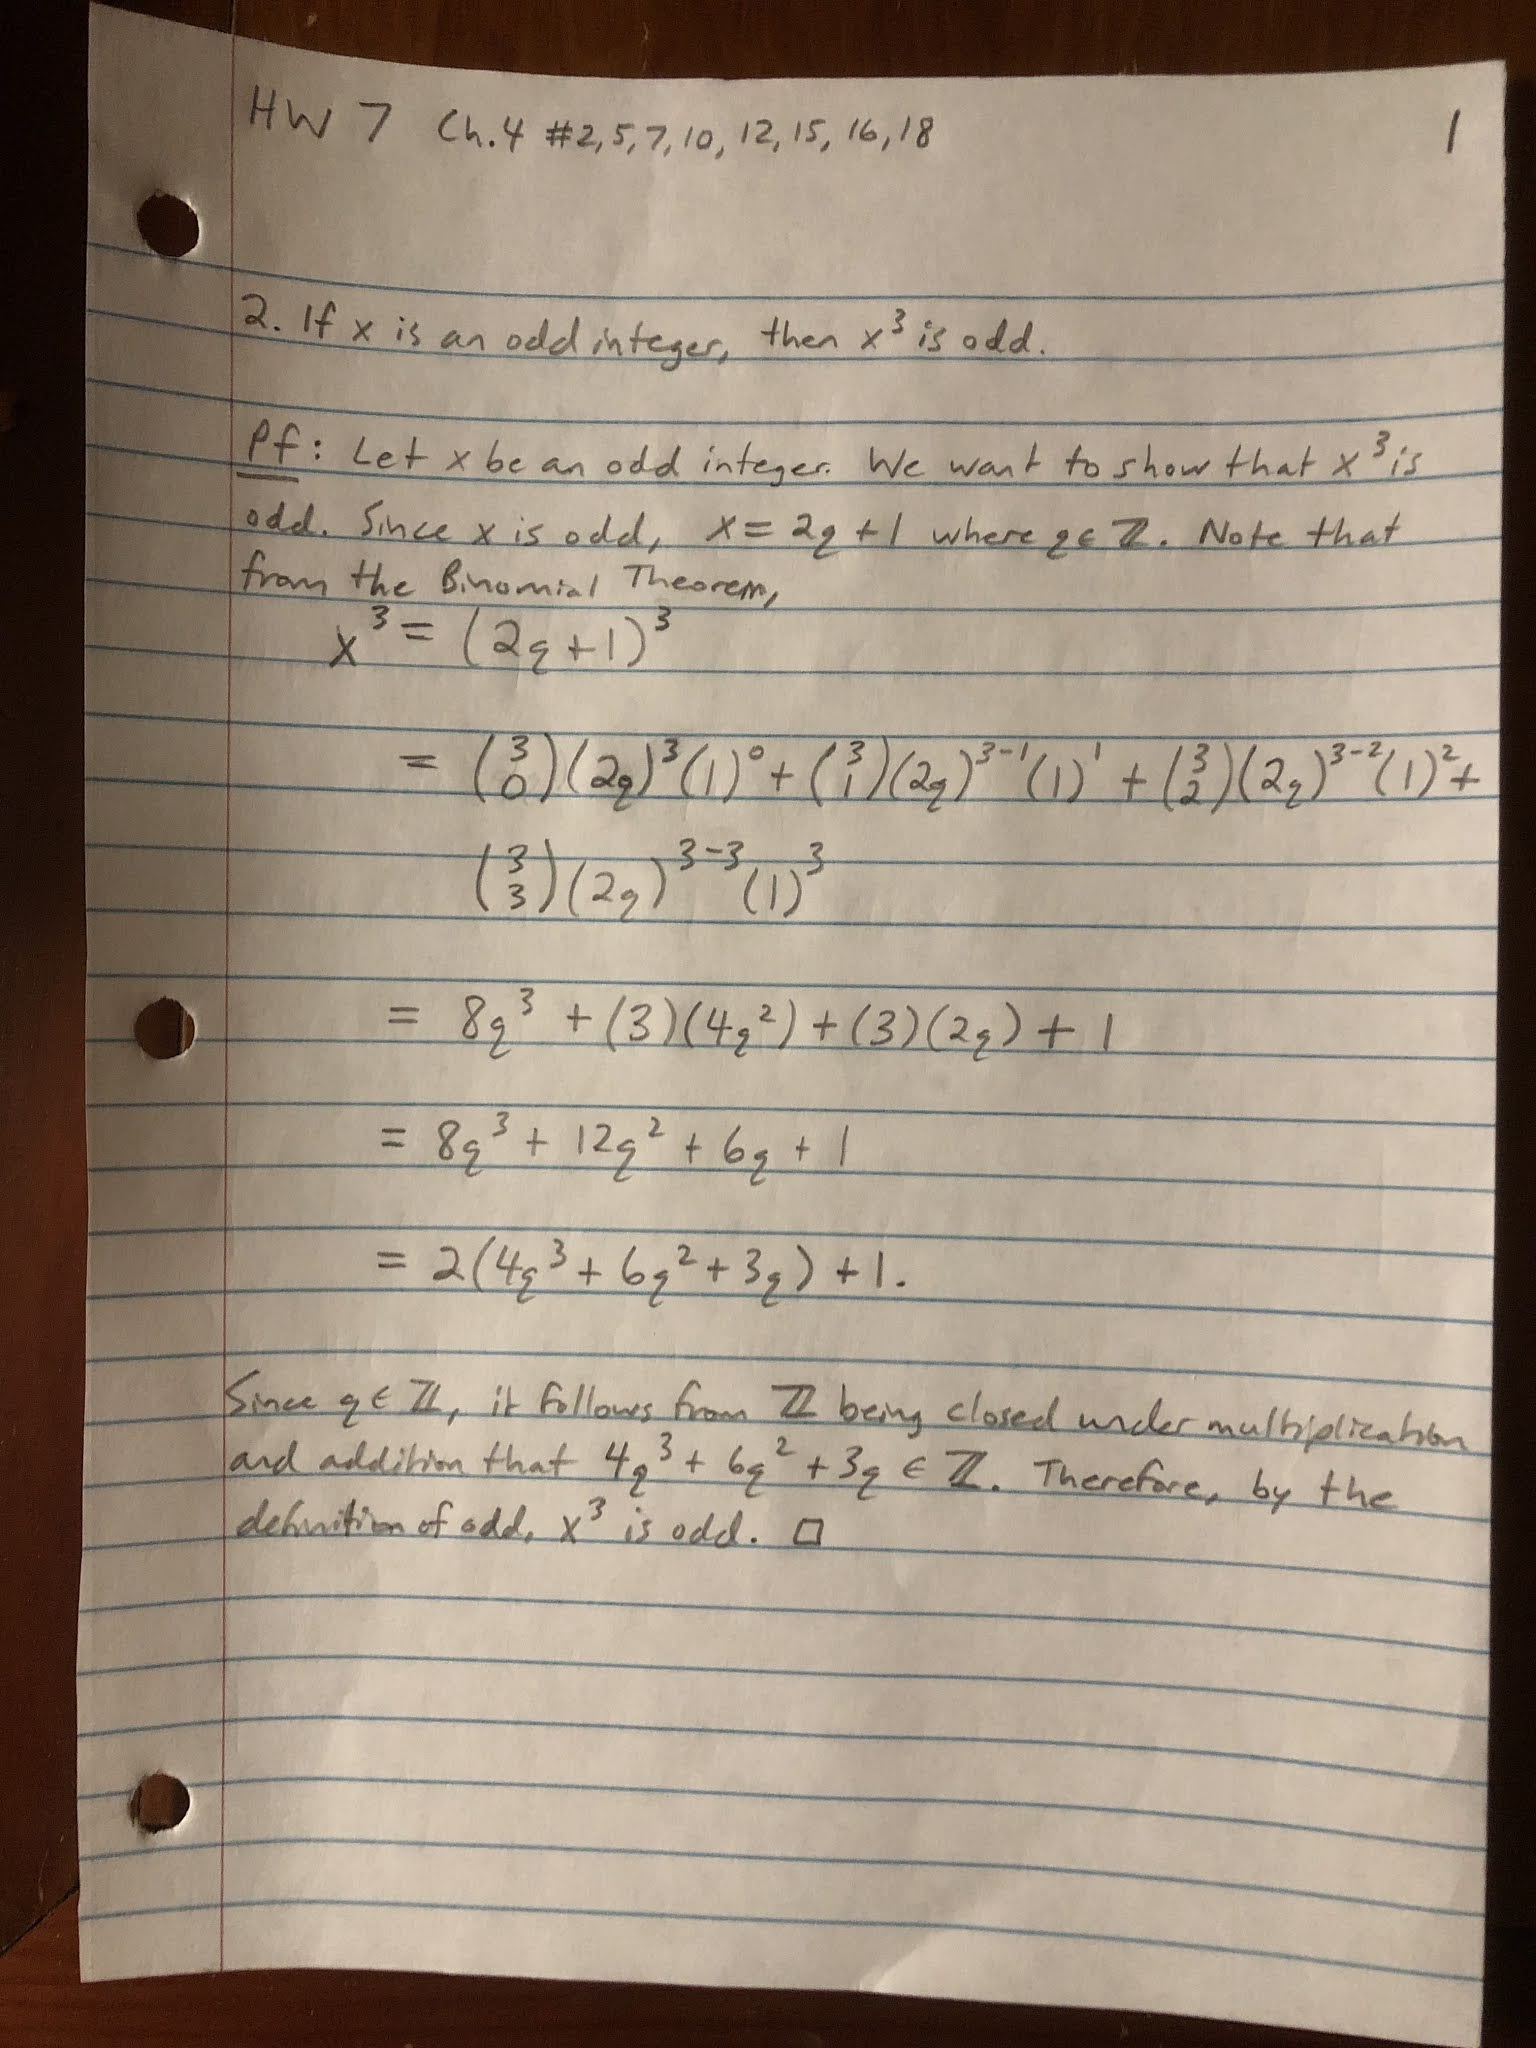 HW 7 Ch.4 #2,5,7,10,12,15,16,18 1
2. If x is an odd integer, then x³ is odd.
Pf: Let x be an odd integer. We want to show that x³ is
odd. Since x is odd, x = 2q + 1 where q ∈ ℤ. Note that
from the Binomial Theorem,
x³ = (2q + 1)³
= (3 0)(2q)³(1)⁰ + (3 1)(2q)³⁻¹(1)¹ + (3 2)(2q)³⁻²(1)² +
(3 3)(2q)³⁻³(1)³
= 8q³ + (3)(4q²) + (3)(2q) + 1
= 8q³ + 12q² + 6q + 1
= 2(4q³ + 6q² + 3q) + 1.
Since q ∈ ℤ, it follows from ℤ being closed under multiplication
and addition that 4q³ + 6q² + 3q ∈ ℤ. Therefore, by the
definition of odd, x³ is odd. □